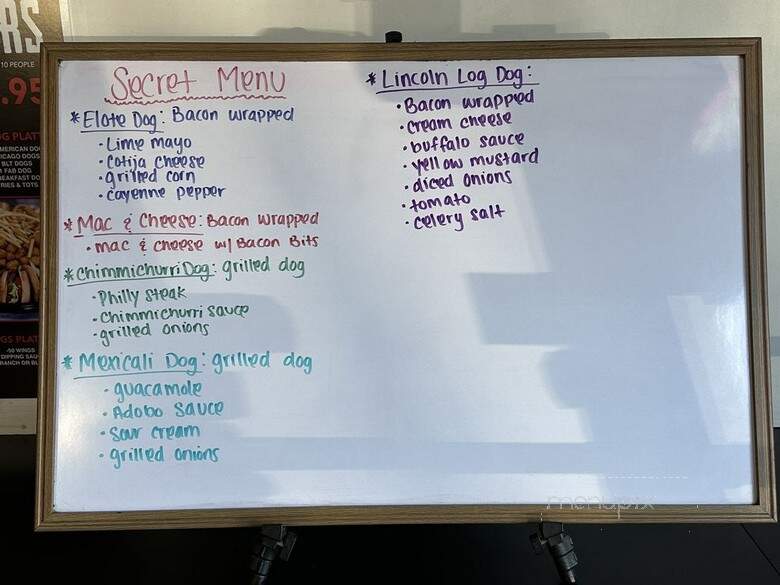 RS
10 PEOPLE
.95
Secret Menu
* Elote Dog: Bacon wrapped
• Lime mayo
• Cotija cheese
• grilled corn
• cayenne pepper
* Mac & Cheese: Bacon wrapped
• mac & cheese w/ Bacon Bits
* Chimmichurri Dog: grilled dog
• Philly steak
• Chimmichurri sauce
• grilled onions
* Mexicali Dog: grilled dog
• guacamole
• Adobo sauce
• Sour cream
• grilled onions
* Lincoln Log Dog:
• Bacon wrapped
• cream cheese
• buffalo sauce
• yellow mustard
• diced onions
• tomato
• celery salt
OG PLATT
MERICAN DO
ICAGO DOGS
BLT DOGS
FAB DOG
EAKFAST DO
RIES & TOTS
GS PLAT
50 WINGS
DIPPING SAU
RANCH OR BL
menupix